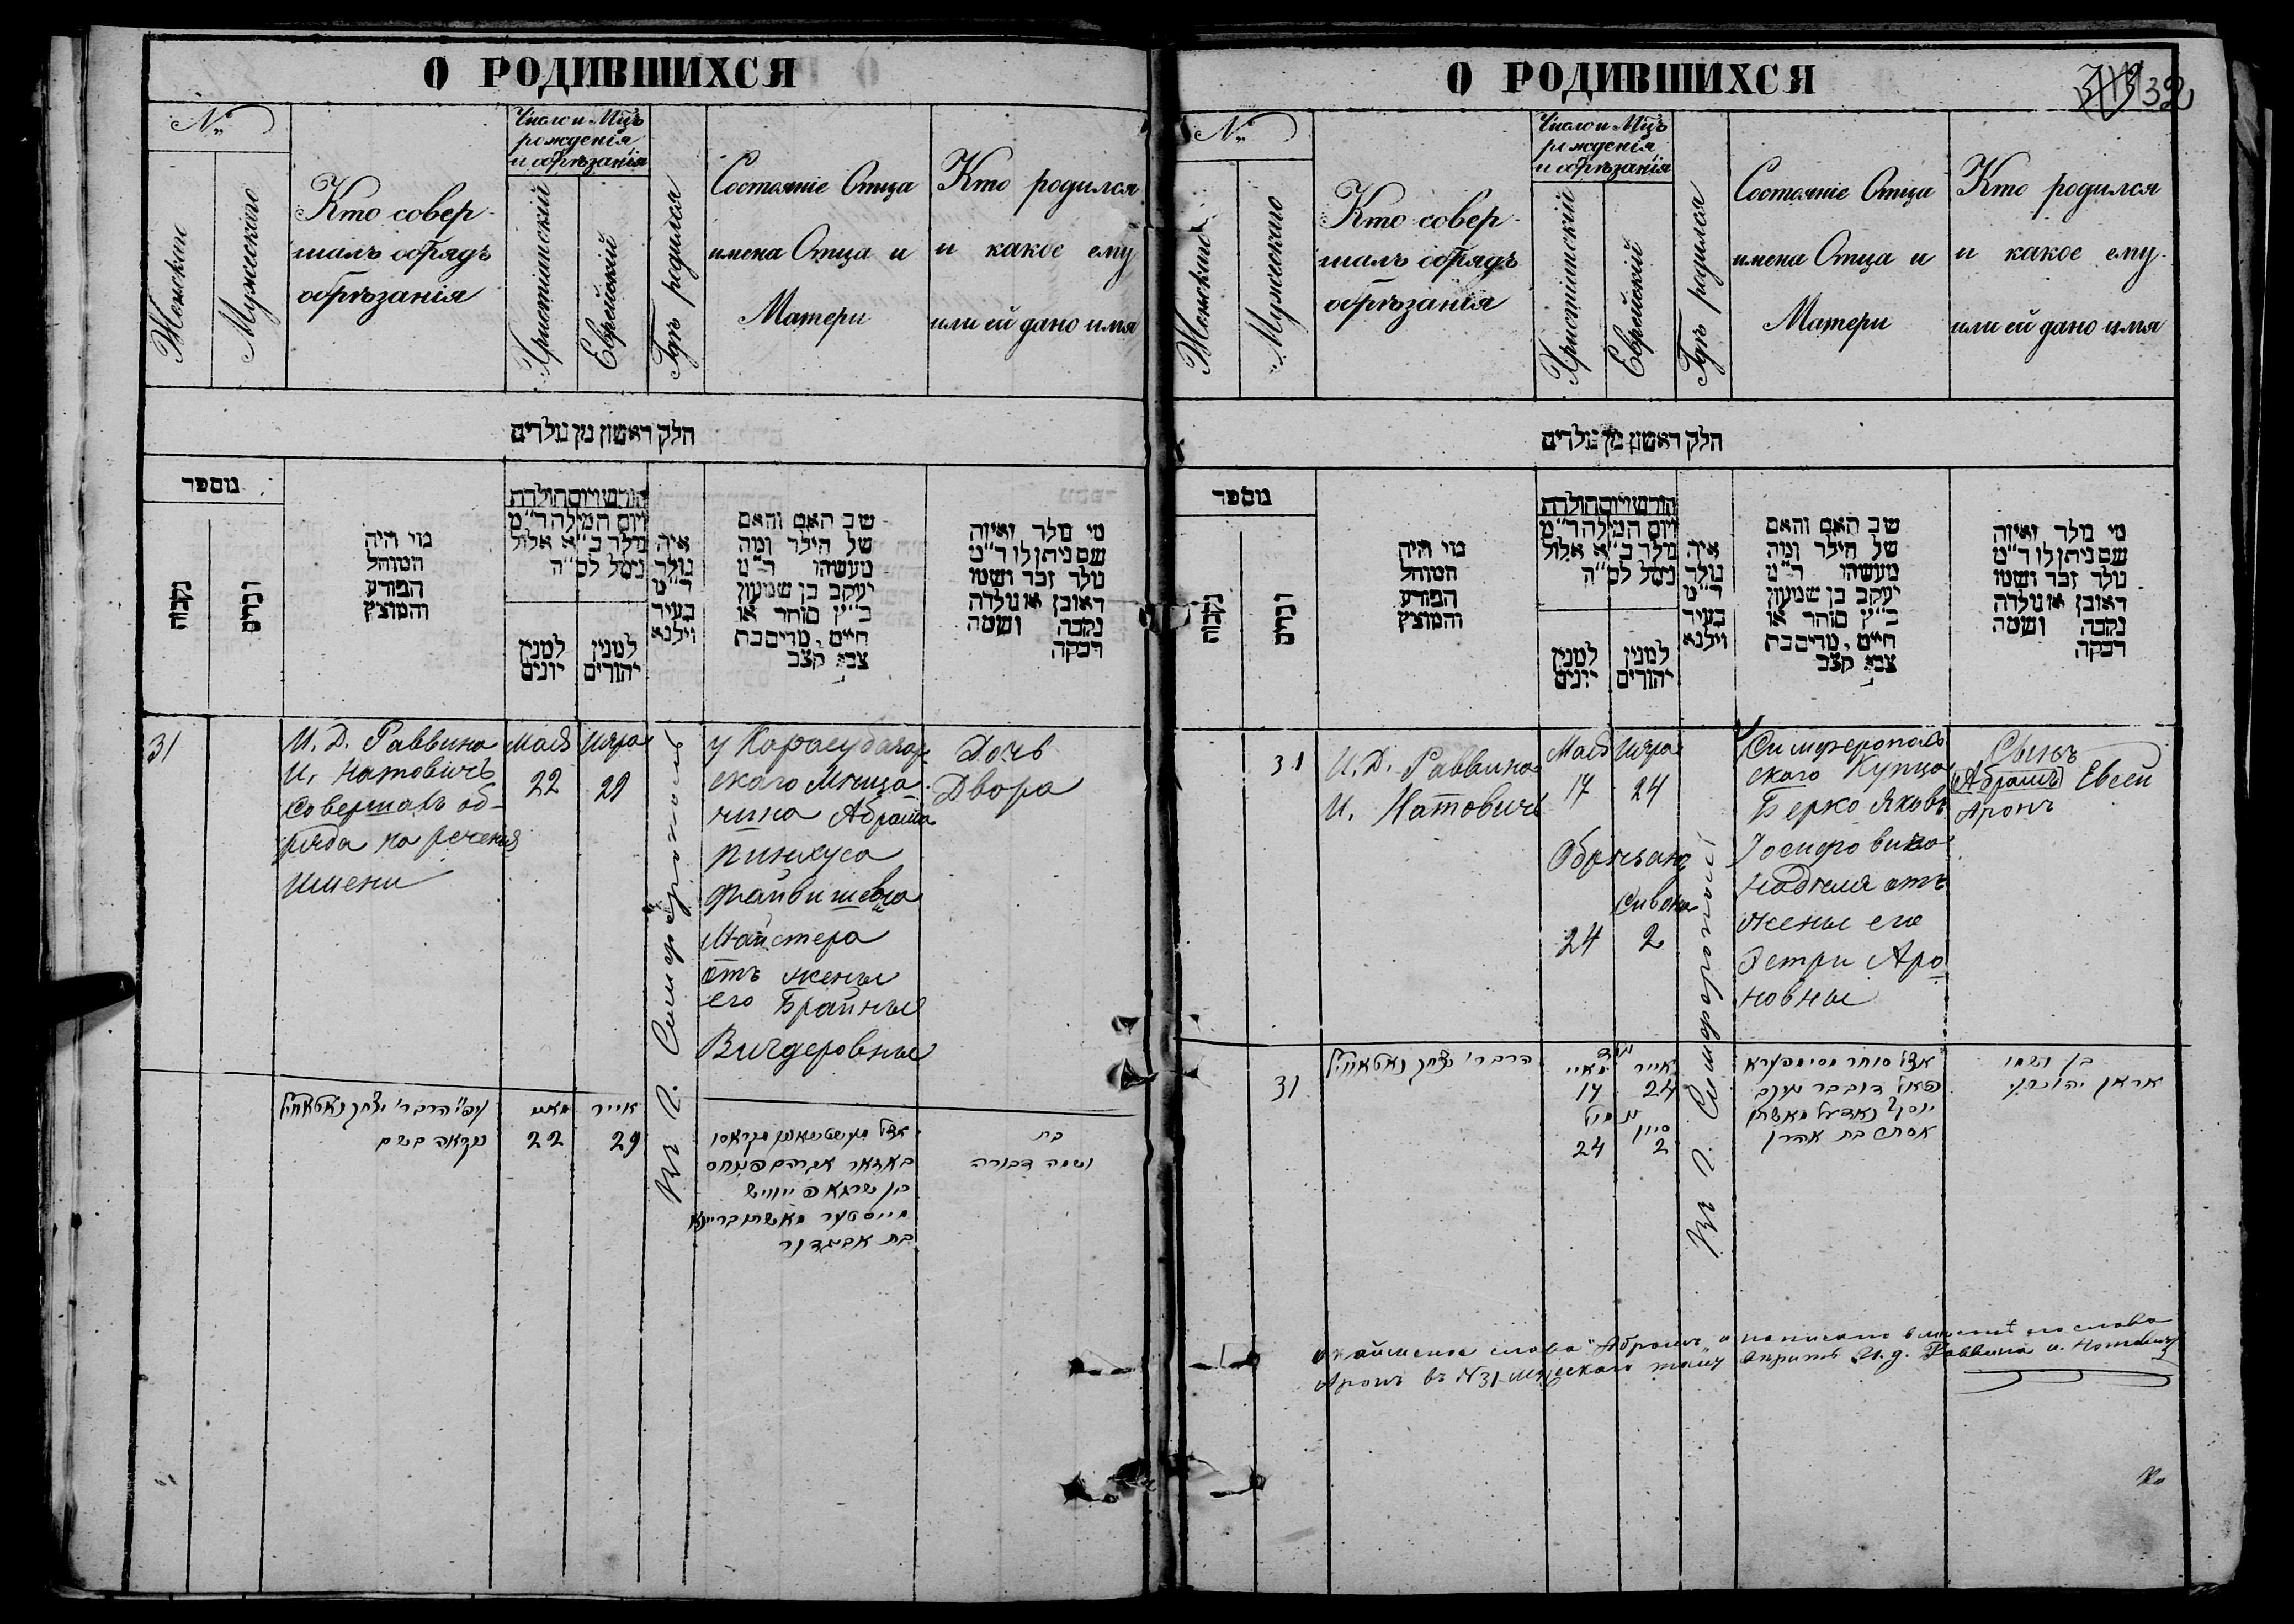 О РОДИВШИХСЯ
№
Женскаго
Мужескаго
Кто совер-
шалъ обрядъ
обрѣзанія
Число и Мцъ
рожденія
и обрѣзанія
Христіанскій
Еврейскій
Гдѣ родился
Состояніе Отца
имена Отца и
Матери
Кто родился
и какое ему
или ей дано имя
חלק ראשון מן נולדים
מוספר
נקבות
זכרים
מוי היה
המוהל
הפורע
והמוצץ
חודש ויום הולדת
ויום המילה ד״מ
נולד כ״א אלול
נימל לס״ה
למנין
יונים
למנין
יהודים
איה
נולד
ד״מ
בעיר
וילנא
שב האם והאם
של הילד ומה
מעשהו ד״מ
יעקב בן שמעון
כ״ץ סוחר או
חייט, מרים בת
צבי קצב
מי נולד ואיזה
שם ניתן לו ד״מ
נולד זכר ושמו
ראובן או נולדה
נקבה ושמה
רבקה
31
И. Д. Раввина
И. Натовичъ
совершавъ об-
ряда на реченія
имени
Мая
22
Ияра
29
Въ г. Симферополь
у Карасубазар-
скаго Мѣща-
нина Абрама
Пинхуса
Файвишева
Майстера
отъ жены
его Брайны
Вигдеровны
Дочь
Двора
נקראה בשם
22
אייר
29
בן
מייסטער
בת אביגדור
בת
ושמה דבורה
О РОДИВШИХСЯ
32
№
Женскаго
Мужескаго
Кто совер-
шалъ обрядъ
обрѣзанія
Число и Мцъ
рожденія
и обрѣзанія
Христіанскій
Еврейскій
Гдѣ родился
Состояніе Отца
имена Отца и
Матери
Кто родился
и какое ему
или ей дано имя
חלק ראשון מן נולדים
מוספר
נקבות
זכרים
מוי היה
המוהל
הפורע
והמוצץ
חודש ויום הולדת
ויום המילה ד״מ
נולד כ״א אלול
נימל לס״ה
למנין
יונים
למנין
יהודים
איה
נולד
ד״מ
בעיר
וילנא
שב האם והאם
של הילד ומה
מעשהו ד״מ
יעקב בן שמעון
כ״ץ סוחר או
חייט, מרים בת
צבי קצב
מי נולד ואיזה
שם ניתן לו ד״מ
נולד זכר ושמו
ראובן או נולדה
נקבה ושמה
רבקה
31
И. Д. Раввина
И. Натовичъ
Мая
17
Ияра
24
Обрѣзанъ
Сивона
24 2
Въ г. Симферополь
Симферополь
скаго Купца
Берко Яковъ
Іосифовича
Наделя отъ
жены его
Эстри Аро
новны
Сынъ
Абрамъ Евсей
Аронъ
31
17
24
אייר
24
סיון
2
אצל סוחר
אסתר בת אהרן
בן ושמו
слово "Абрамъ" написано вмѣсто слова
Аронъ въ N31 мужскаго тому вѣрить И. д. Раввина И. Натовичъ